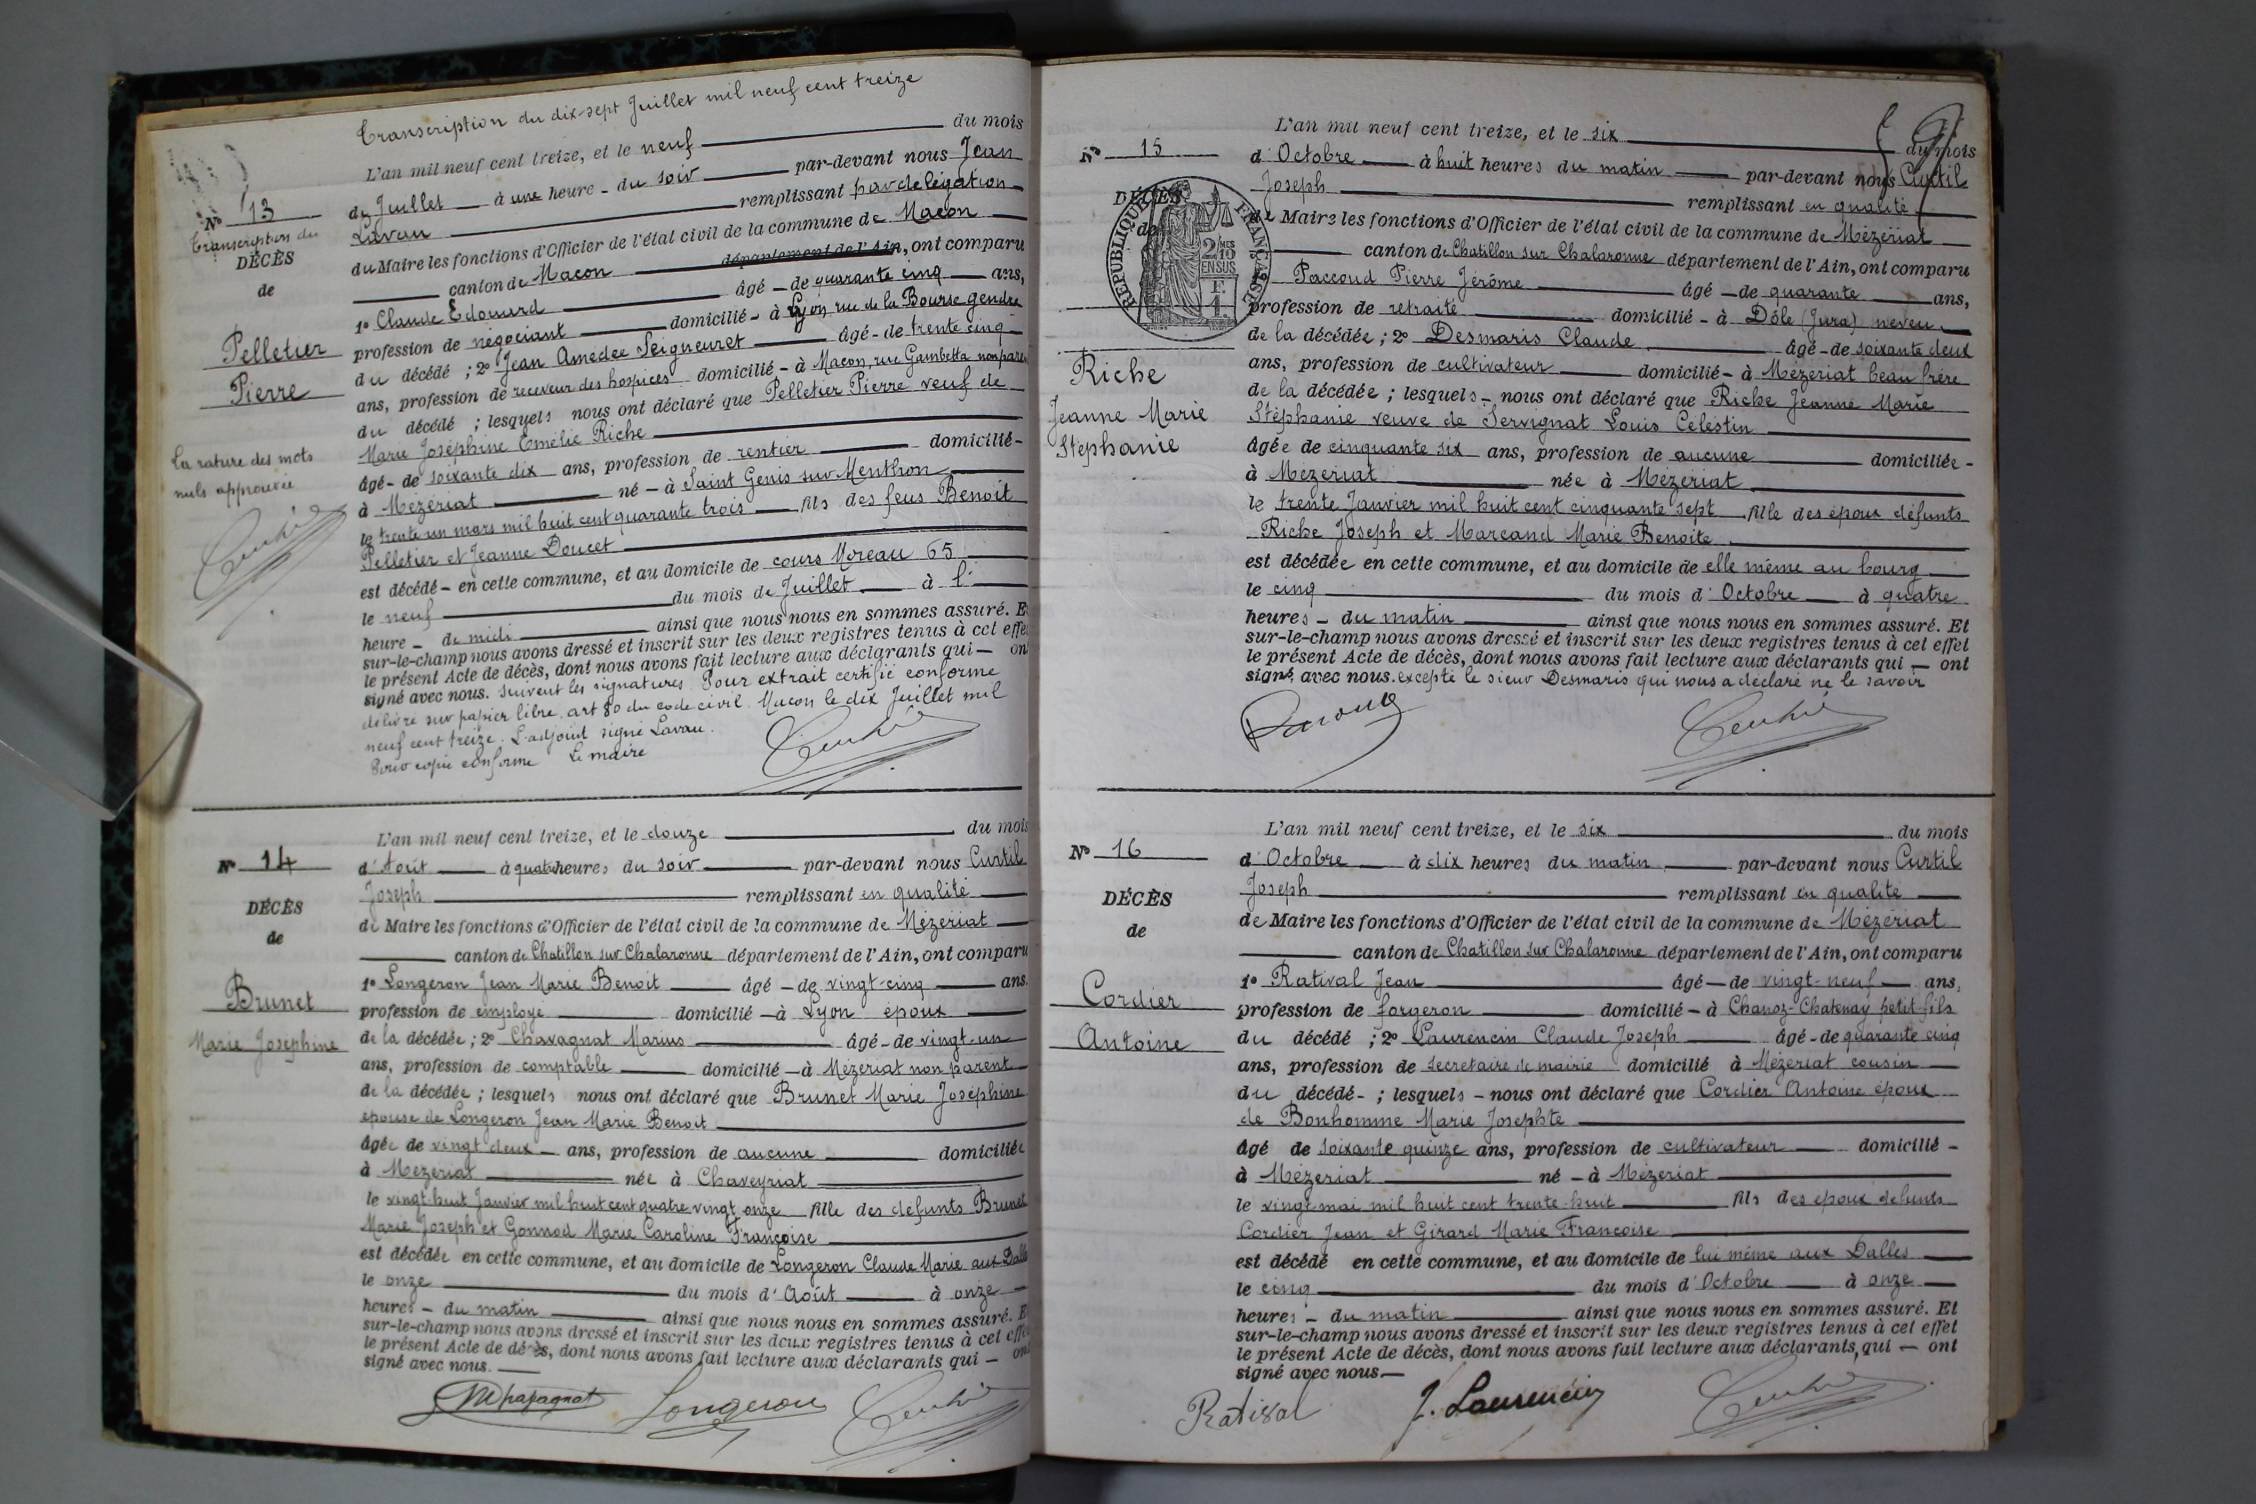 Transcription du dix-sept Juillet mil neuf cent treize
L'an mil neuf cent treize, et le neuf du mois
de Juillet à une heure - du soir par-devant nous Jean
Lavau remplissant par délégation
du Maire les fonctions d'Officier de l'état civil de la commune de Macon
canton de Macon département de l'Ain, ont comparu
1º Claude Edouard âgé - de quarante cinq ans,
profession de négociant domicilié - à Lyon rue de la Bourse gendre
du décédé ; 2º Jean Amédée Seigneuret âgé - de trente cinq
ans, profession de receveur des hospices domicilié - à Macon, rue Gambetta non parent
du décédé ; lesquels nous ont déclaré que Pelletier Pierre veuf de
Marie Joséphine Emélie Riche
âgé - de soixante dix ans, profession de rentier domicilié -
à Mézériat né - à Saint Genis sur Menthon
le trente un mars mil huit cent quarante trois fils des feus Benoit
Pelletier et Jeanne Doucet
est décédé - en cette commune, et au domicile de cours Moreau 65
le neuf du mois de Juillet à l'
heure - de midi ainsi que nous nous en sommes assuré. Et
sur-le-champ nous avons dressé et inscrit sur les deux registres tenus à cet effet
le présent Acte de décès, dont nous avons fait lecture aux déclarants qui - ont
signé avec nous. Suivent les signatures. Pour extrait certifié conforme
délivré sur papier libre, art 80 du code civil. Macon le dix Juillet mil
neuf cent treize. L'adjoint signé Lavau.
Pour copie conforme Le maire
Nº 13
Transcription du
DÉCÈS
de
Pelletier
Pierre
La rature des mots
nuls approuvée
L'an mil neuf cent treize, et le douze du mois
d'Août à quatre heures du soir par-devant nous Curtil
Joseph remplissant en qualité
de Maire les fonctions d'Officier de l'état civil de la commune de Mézériat
canton de Chatillon sur Chalaronne département de l'Ain, ont comparu
1º Longeron Jean Marie Benoit âgé - de vingt-cinq ans.
profession de employé domicilié - à Lyon époux
de la décédée ; 2º Chavagnat Marius âgé - de vingt-un
ans, profession de comptable domicilié - à Mézériat non parent
de la décédée ; lesquels nous ont déclaré que Brunet Marie Joséphine
épouse de Longeron Jean Marie Benoit
âgée de vingt deux - ans, profession de aucune domiciliée
à Mézériat née à Chaveyriat
le vingt-huit Janvier mil huit cent quatre vingt onze fille des défunts Brunet
Marie Joseph et Gonnod Marie Caroline Françoise
est décédée en cette commune, et au domicile de Longeron Claude Marie aux Dalles
le onze du mois d'Août à onze
heures - du matin ainsi que nous nous en sommes assuré. Et
sur-le-champ nous avons dressé et inscrit sur les deux registres tenus à cet effet
le présent Acte de décès, dont nous avons fait lecture aux déclarants qui - ont
signé avec nous.
Longeron
Nº 14
DÉCÈS
de
Brunet
Marie Joséphine
L'an mil neuf cent treize, et le six du mois
d'Octobre à huit heures du matin par-devant nous Curtil
Joseph remplissant en qualité
de Maire les fonctions d'Officier de l'état civil de la commune de Mézériat
canton de Chatillon sur Chalaronne département de l'Ain, ont comparu
1º Paccoud Pierre Jérôme âgé - de quarante ans,
profession de retraité domicilié - à Dôle (Jura) neveu
de la décédée ; 2º Desmaris Claude âgé - de soixante deux
ans, profession de cultivateur domicilié - à Mézériat beau frère
de la décédée ; lesquels - nous ont déclaré que Riche Jeanne Marie
Stéphanie veuve de Servignat Louis Célestin
âgée de cinquante six ans, profession de aucune domiciliée -
à Mézériat née à Mézériat
le trente Janvier mil huit cent cinquante sept fille des époux défunts
Riche Joseph et Marcand Marie Benoite
est décédée en cette commune, et au domicile de elle même au bourg
le cinq du mois d'Octobre à quatre
heures - du matin ainsi que nous nous en sommes assuré. Et
sur-le-champ nous avons dressé et inscrit sur les deux registres tenus à cet effet
le présent Acte de décès, dont nous avons fait lecture aux déclarants qui - ont
signé avec nous. excepté le sieur Desmaris qui nous a déclaré ne le savoir
Nº 15
DÉCÈS
de
RÉPUBLIQUE FRANÇAISE
2/10 MES
EN SUS
F.
1.
Riche
Jeanne Marie
Stéphanie
L'an mil neuf cent treize, et le six du mois
d'Octobre à dix heures du matin par-devant nous Curtil
Joseph remplissant en qualité
de Maire les fonctions d'Officier de l'état civil de la commune de Mézériat
canton de Chatillon sur Chalaronne département de l'Ain, ont comparu
1º Ratival Jean âgé - de vingt-neuf ans,
profession de forgeron domicilié - à Chanoz-Chatenay petit fils
du décédé ; 2º Laurencin Claude Joseph âgé - de quarante cinq
ans, profession de secrétaire de mairie domicilié à Mézériat cousin
du décédé - ; lesquels - nous ont déclaré que Cordier Antoine époux
de Bonhomme Marie Josephte
âgé de soixante quinze ans, profession de cultivateur domicilié -
à Mézériat né - à Mézériat
le vingt mai mil huit cent trente-huit fils des époux défunts
Cordier Jean et Girard Marie Françoise
est décédé en cette commune, et au domicile de lui même aux Dalles
le cinq du mois d'Octobre à onze
heures - du matin ainsi que nous nous en sommes assuré. Et
sur-le-champ nous avons dressé et inscrit sur les deux registres tenus à cet effet
le présent Acte de décès, dont nous avons fait lecture aux déclarants, qui - ont
signé avec nous -
Ratival J. Laurencin
Nº 16
DÉCÈS
de
Cordier
Antoine